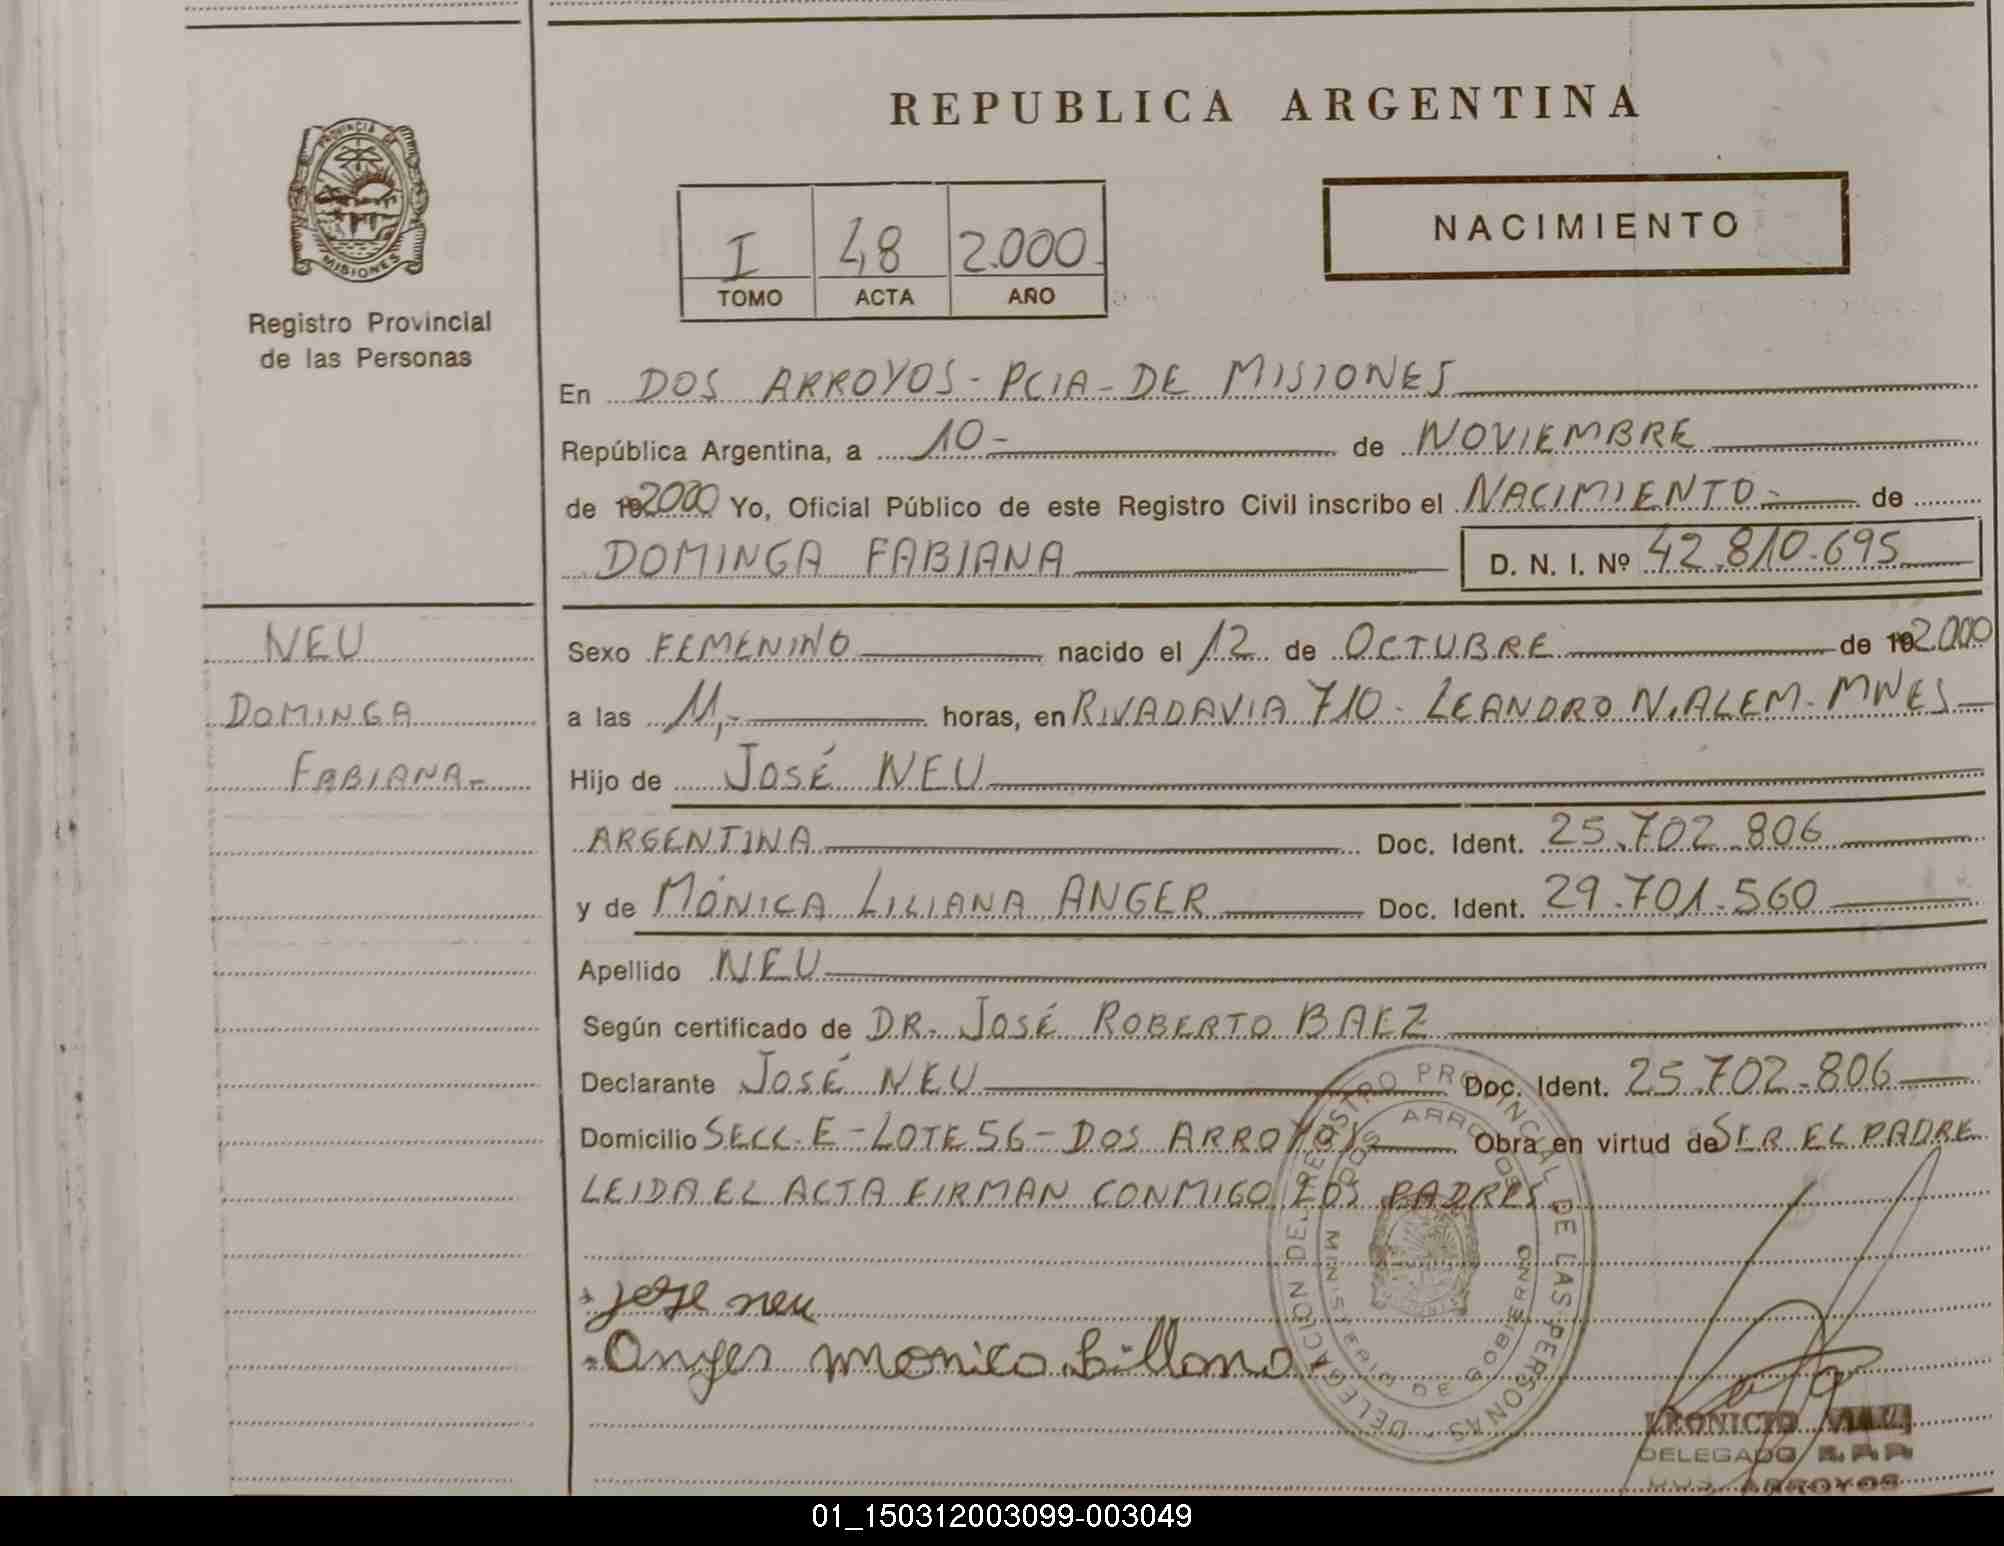 REPUBLICA ARGENTINA
PROVINCIA DE MISIONES
Registro Provincial
de las Personas
NACIMIENTO
I 48 2.000
TOMO ACTA AÑO
En DOS ARROYOS - PCIA - DE MISIONES
República Argentina, a 10 - de NOVIEMBRE
de 192000 Yo, Oficial Público de este Registro Civil inscribo el NACIMIENTO - de
DOMINGA FABIANA D. N. I. Nº 42.810.695
NEU
DOMINGA
FABIANA -
Sexo FEMENINO nacido el 12 de OCTUBRE de 192.000
a las 11,- horas, en RIVADAVIA 710 - LEANDRO N. ALEM - MNES
Hijo de JOSÉ NEU
ARGENTINA Doc. Ident. 25.702.806
y de MÓNICA LILIANA ANGER Doc. Ident. 29.701.560
Apellido NEU
Según certificado de DR. JOSÉ ROBERTO BAEZ
Declarante JOSÉ NEU Doc. Ident. 25.702.806
Domicilio SECC. E - LOTE 56 - DOS ARROYOS Obra en virtud de SER EL PADRE
LEIDA EL ACTA FIRMAN CONMIGO LOS PADRES
jose neu
Anger monica liliana
DELEGACION DEL REGISTRO PROVINCIAL DE LAS PERSONAS
DOS ARROYOS
MINISTERIO DE GOBIERNO
LEONICIO
DELEGADO R.P.P.
DOS ARROYOS
01_150312003099-003049